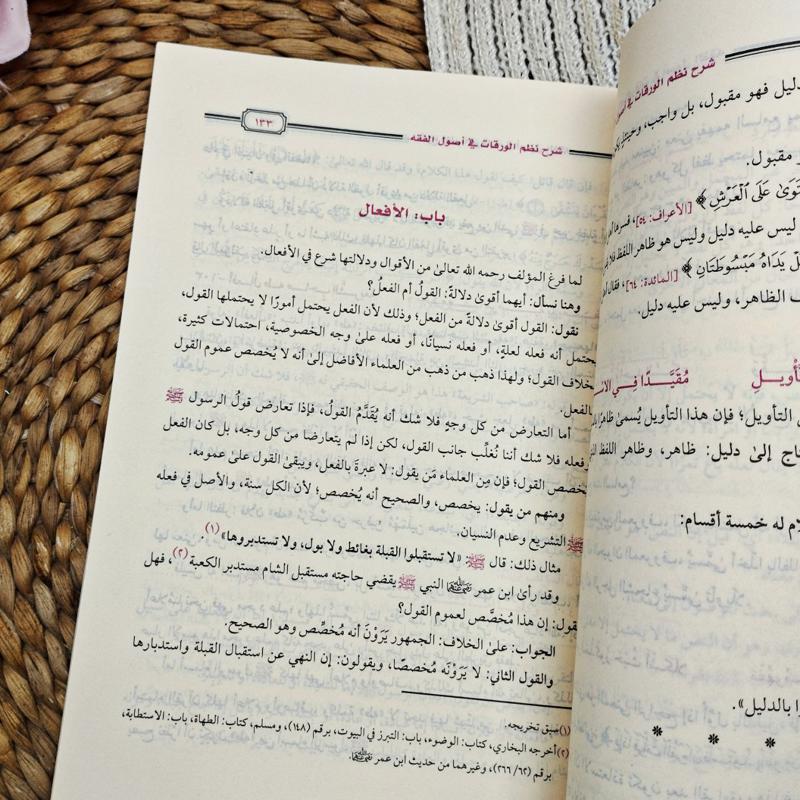 شرح نظم الورقات في أصول
دليل فهو مقبول، بل واجب، وحينئذٍ
مقبول.
عَلَى ٱلْعَرْشِ﴾ [الأعراف: ٥٤]،
ليس عليه دليل وليس هو ظاهر اللفظ
يَدَاهُ مَبْسُوطَتَانِ﴾ [المائدة: ٦٤]، فقال
الظاهر، وليس عليه دليل.
مُقَيَّدًا فِي
التأويل؛ فإن هذا التأويل يُسمىٰ ظاهرًا
إلىٰ دليل: ظاهر، وظاهر اللفظ
له خمسة أقسام:
بالدليل».
* * *
١٣٣
شرح نظم الورقات في أصول الفقه
باب: الأفعال
لما فرغ المؤلف رحمه الله تعالىٰ من الأقوال ودلالتها شرع في الأفعال.
وهنا نسأل: أيهما أقوىٰ دلالةً: القولُ أم الفعلُ؟
نقول: القول أقوىٰ دلالةً من الفعل؛ وذلك لأن الفعل يحتمل أمورًا لا يحتملها القول،
يحتمل أنه فعله لعلةٍ، أو فعله نسيانًا، أو فعله علىٰ وجه الخصوصية، احتمالات كثيرة،
بخلاف القول؛ ولهذا ذهب من ذهب من العلماء الأفاضل إلىٰ أنه لا يُخصص عموم القول
بالفعل.
أما التعارض من كل وجهٍ فلا شك أنه يُقدَّمُ القولُ، فإذا تعارض قولُ الرسول ﷺ
وفعله فلا شك أننا نُغلِّب جانب القول، لكن إذا لم يتعارضا من كل وجه، بل كان الفعل
يخصص القول؛ فإن مِن العلماء مَن يقول: لا عبرةَ بالفعل، ويبقىٰ القول علىٰ عمومه.
ومنهم من يقول: يخصص، والصحيح أنه يُخصص؛ لأن الكل سنة، والأصل في فعله
ﷺ التشريع وعدم النسيان.
مثال ذلك: قال ﷺ: «لا تستقبلوا القبلة بغائط ولا بول، ولا تستدبروها»(١).
وقد رأىٰ ابن عمر رضي الله عنهما النبي ﷺ يقضي حاجته مستقبل الشام مستدبر الكعبة(٢)، فهل
يقول: إن هذا مُخصَّص لعموم القول؟
الجواب: علىٰ الخلاف: الجمهور يَرَوْنَ أنه مخصِّص وهو الصحيح.
والقول الثاني: لا يَرَوْنَه مُخصصًا، ويقولون: إن النهي عن استقبال القبلة واستدبارها
(١) سبق تخريجه.
(٢) أخرجه البخاري، كتاب: الوضوء، باب: التبرز في البيوت، برقم (١٤٨)، ومسلم، كتاب: الطهاة، باب: الاستطابة،
برقم (٦٢/ ٢٦٦)، وغيرهما من حديث ابن عمر رضي الله عنهما.